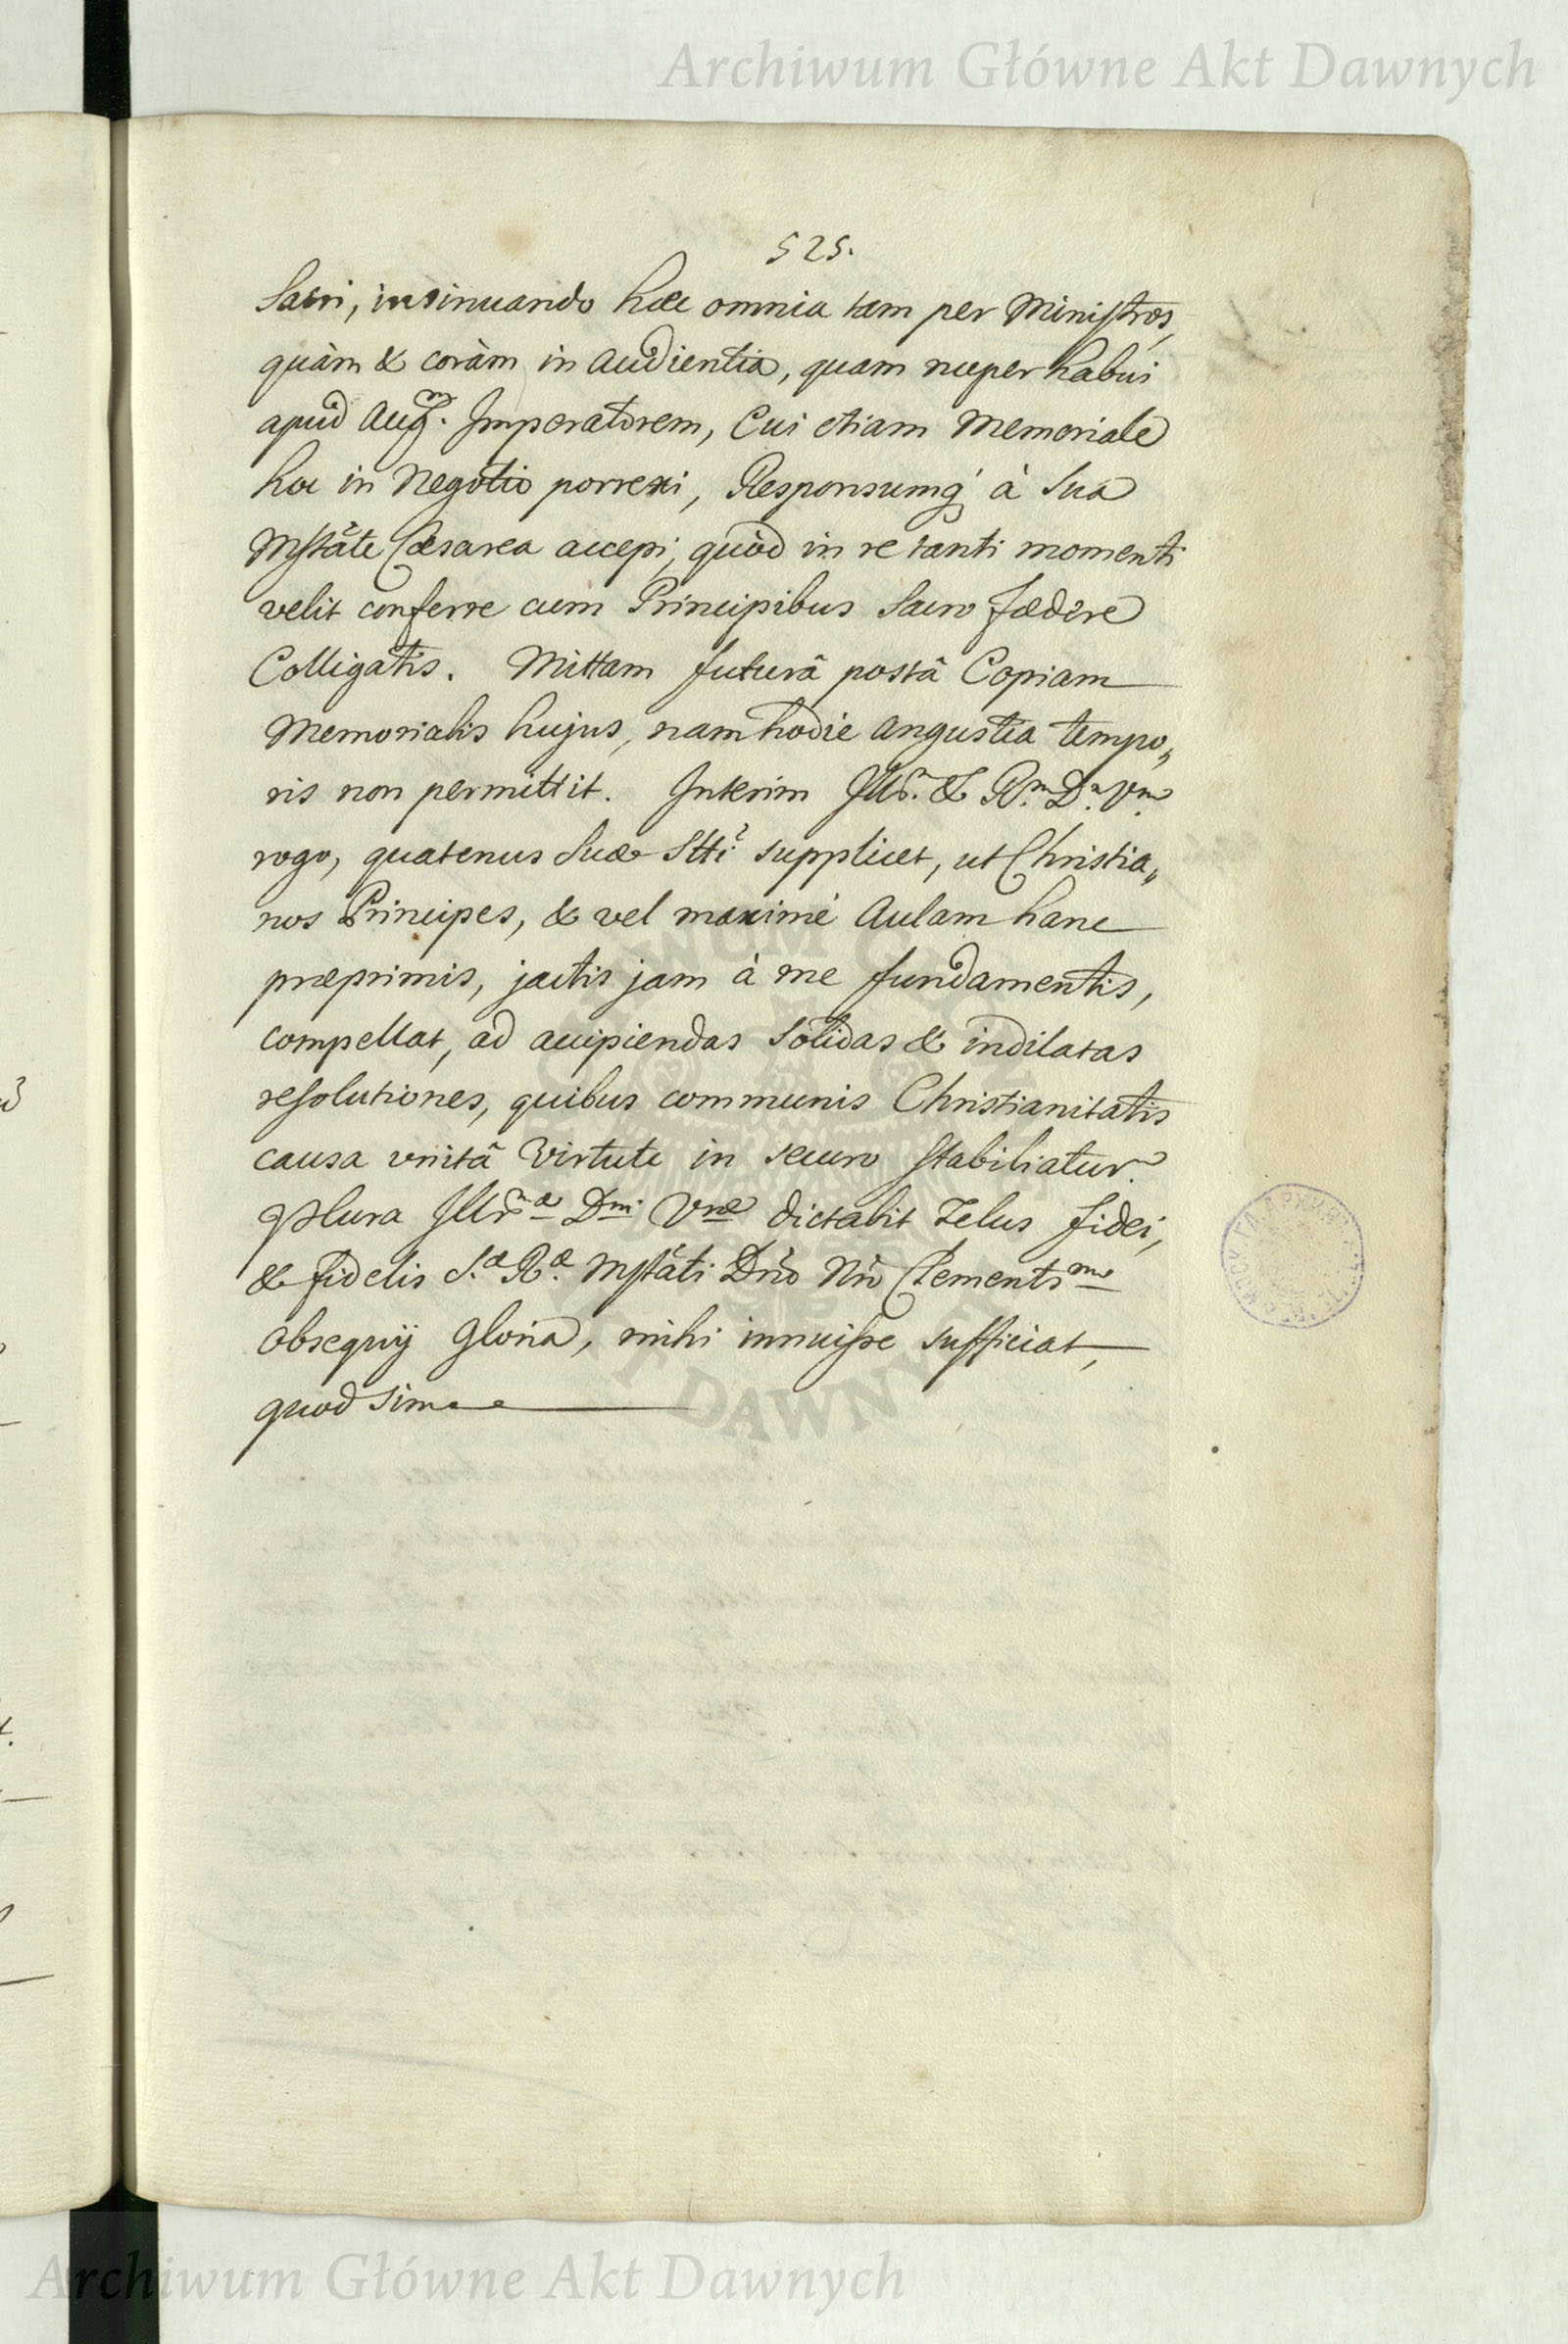 Archiwum Główne Akt Dawnych
525.
Sacri, insinuando hæc omnia tam per Ministros,
quàm & coràm in Audientia, quam nuper habui
apud Augm. Imperatorem, Cui etiam Memoriale
hoc in Negotio porrexi, Responsumq́ à Sua
Mstãte Cæsarea accepi, quòd in re tanti momenti
velit conferre cum Principibus Sacro fædere
Colligatis. Mittam futurâ postâ Copiam
Memorialis hujus, nam hodie angustia tempo„
ris non permittit. Interim Illr. & Rm. Dn. Vm.
rogo, quatenus Suæ Stti supplicet, ut Christia„
nos Principes, & vel maximè Aulam hanc
præprimis, jactis jam à me fundamentis,
compellat, ad accipiendas solidas & indilatas
resolutiones, quibus communis Christianitatis
causa vnitâ virtute in securo stabiliatur.
Plura Illrmæ Dni Vræ dictabit Zelus fidei,
& fidelis S.æ R.æ Mstãti Dño Nño Clementsmo
obsequij Gloria, mihi innuisse sufficiat,
quod sim
ARCHIWUM GŁÓWNE AKT DAWNYCH
Archiwum Główne Akt Dawnych